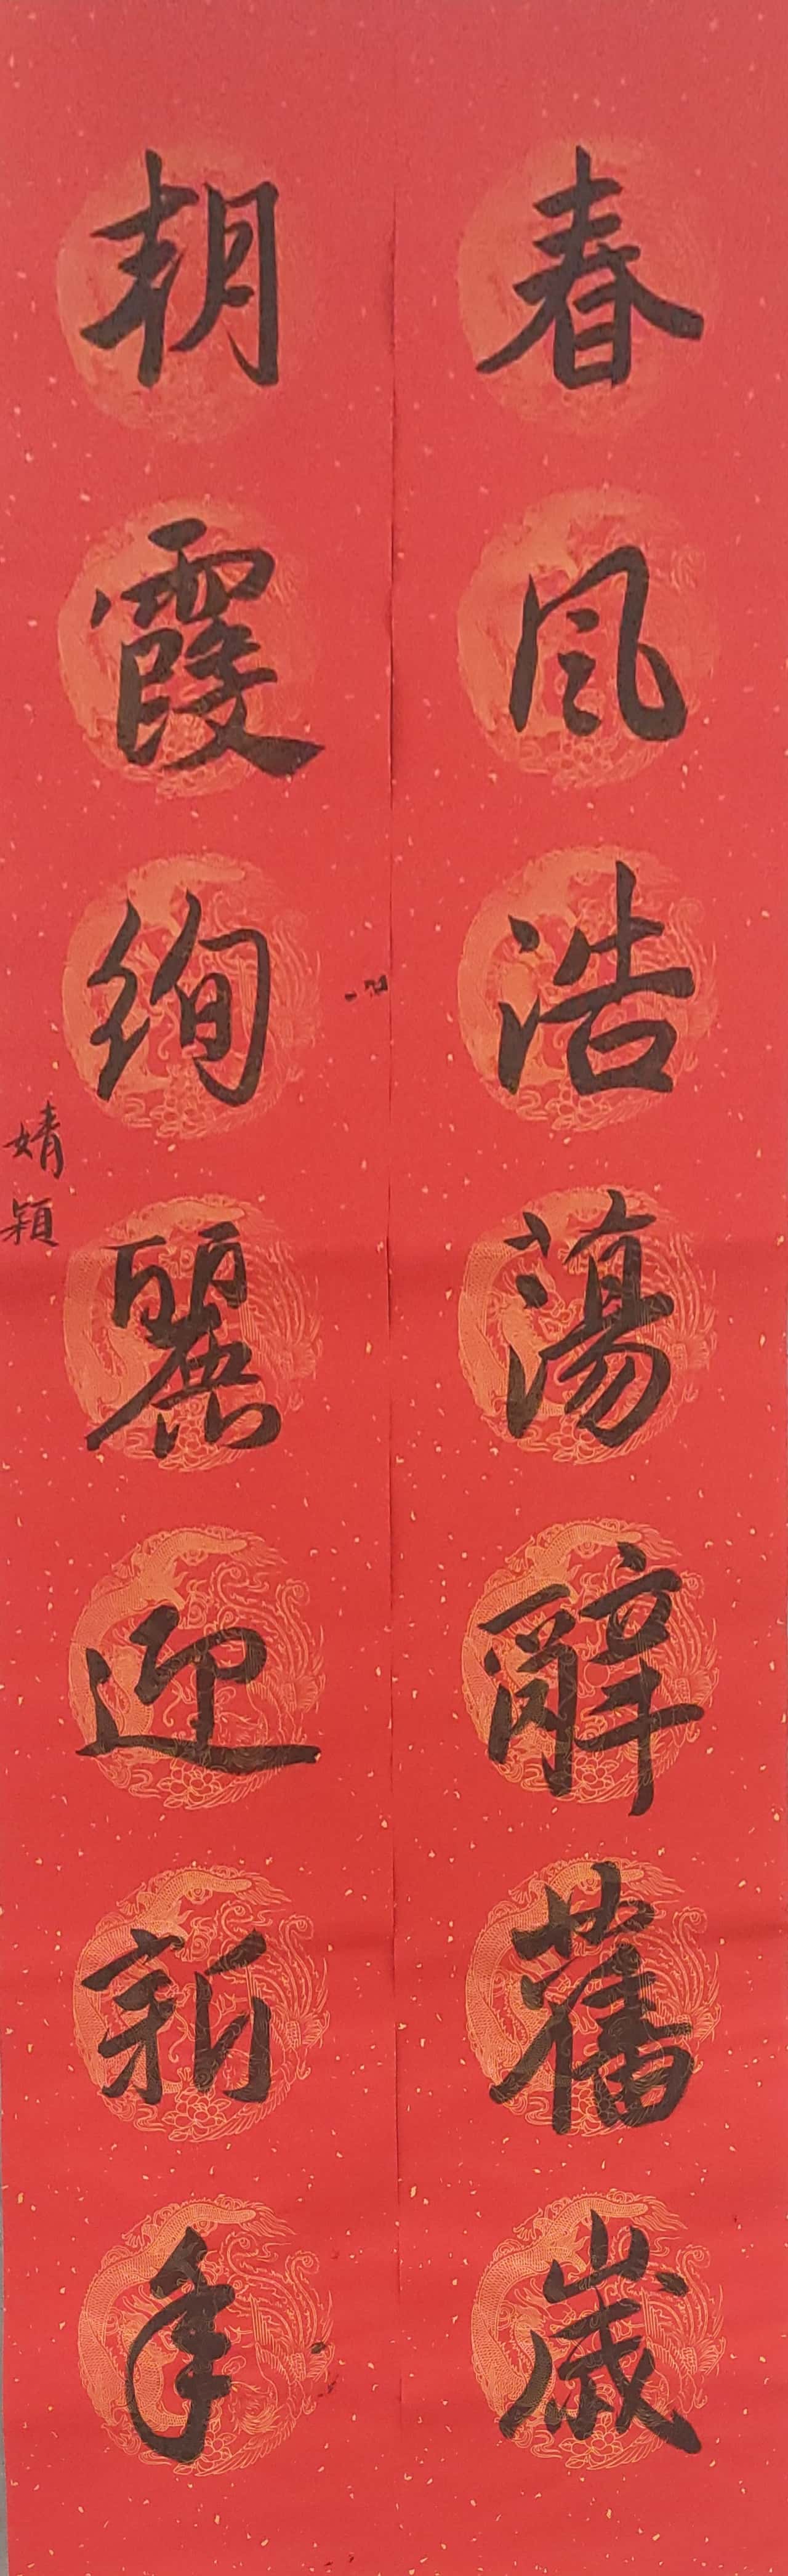 春風浩蕩辭舊歲
朝霞絢麗迎新年
婧穎